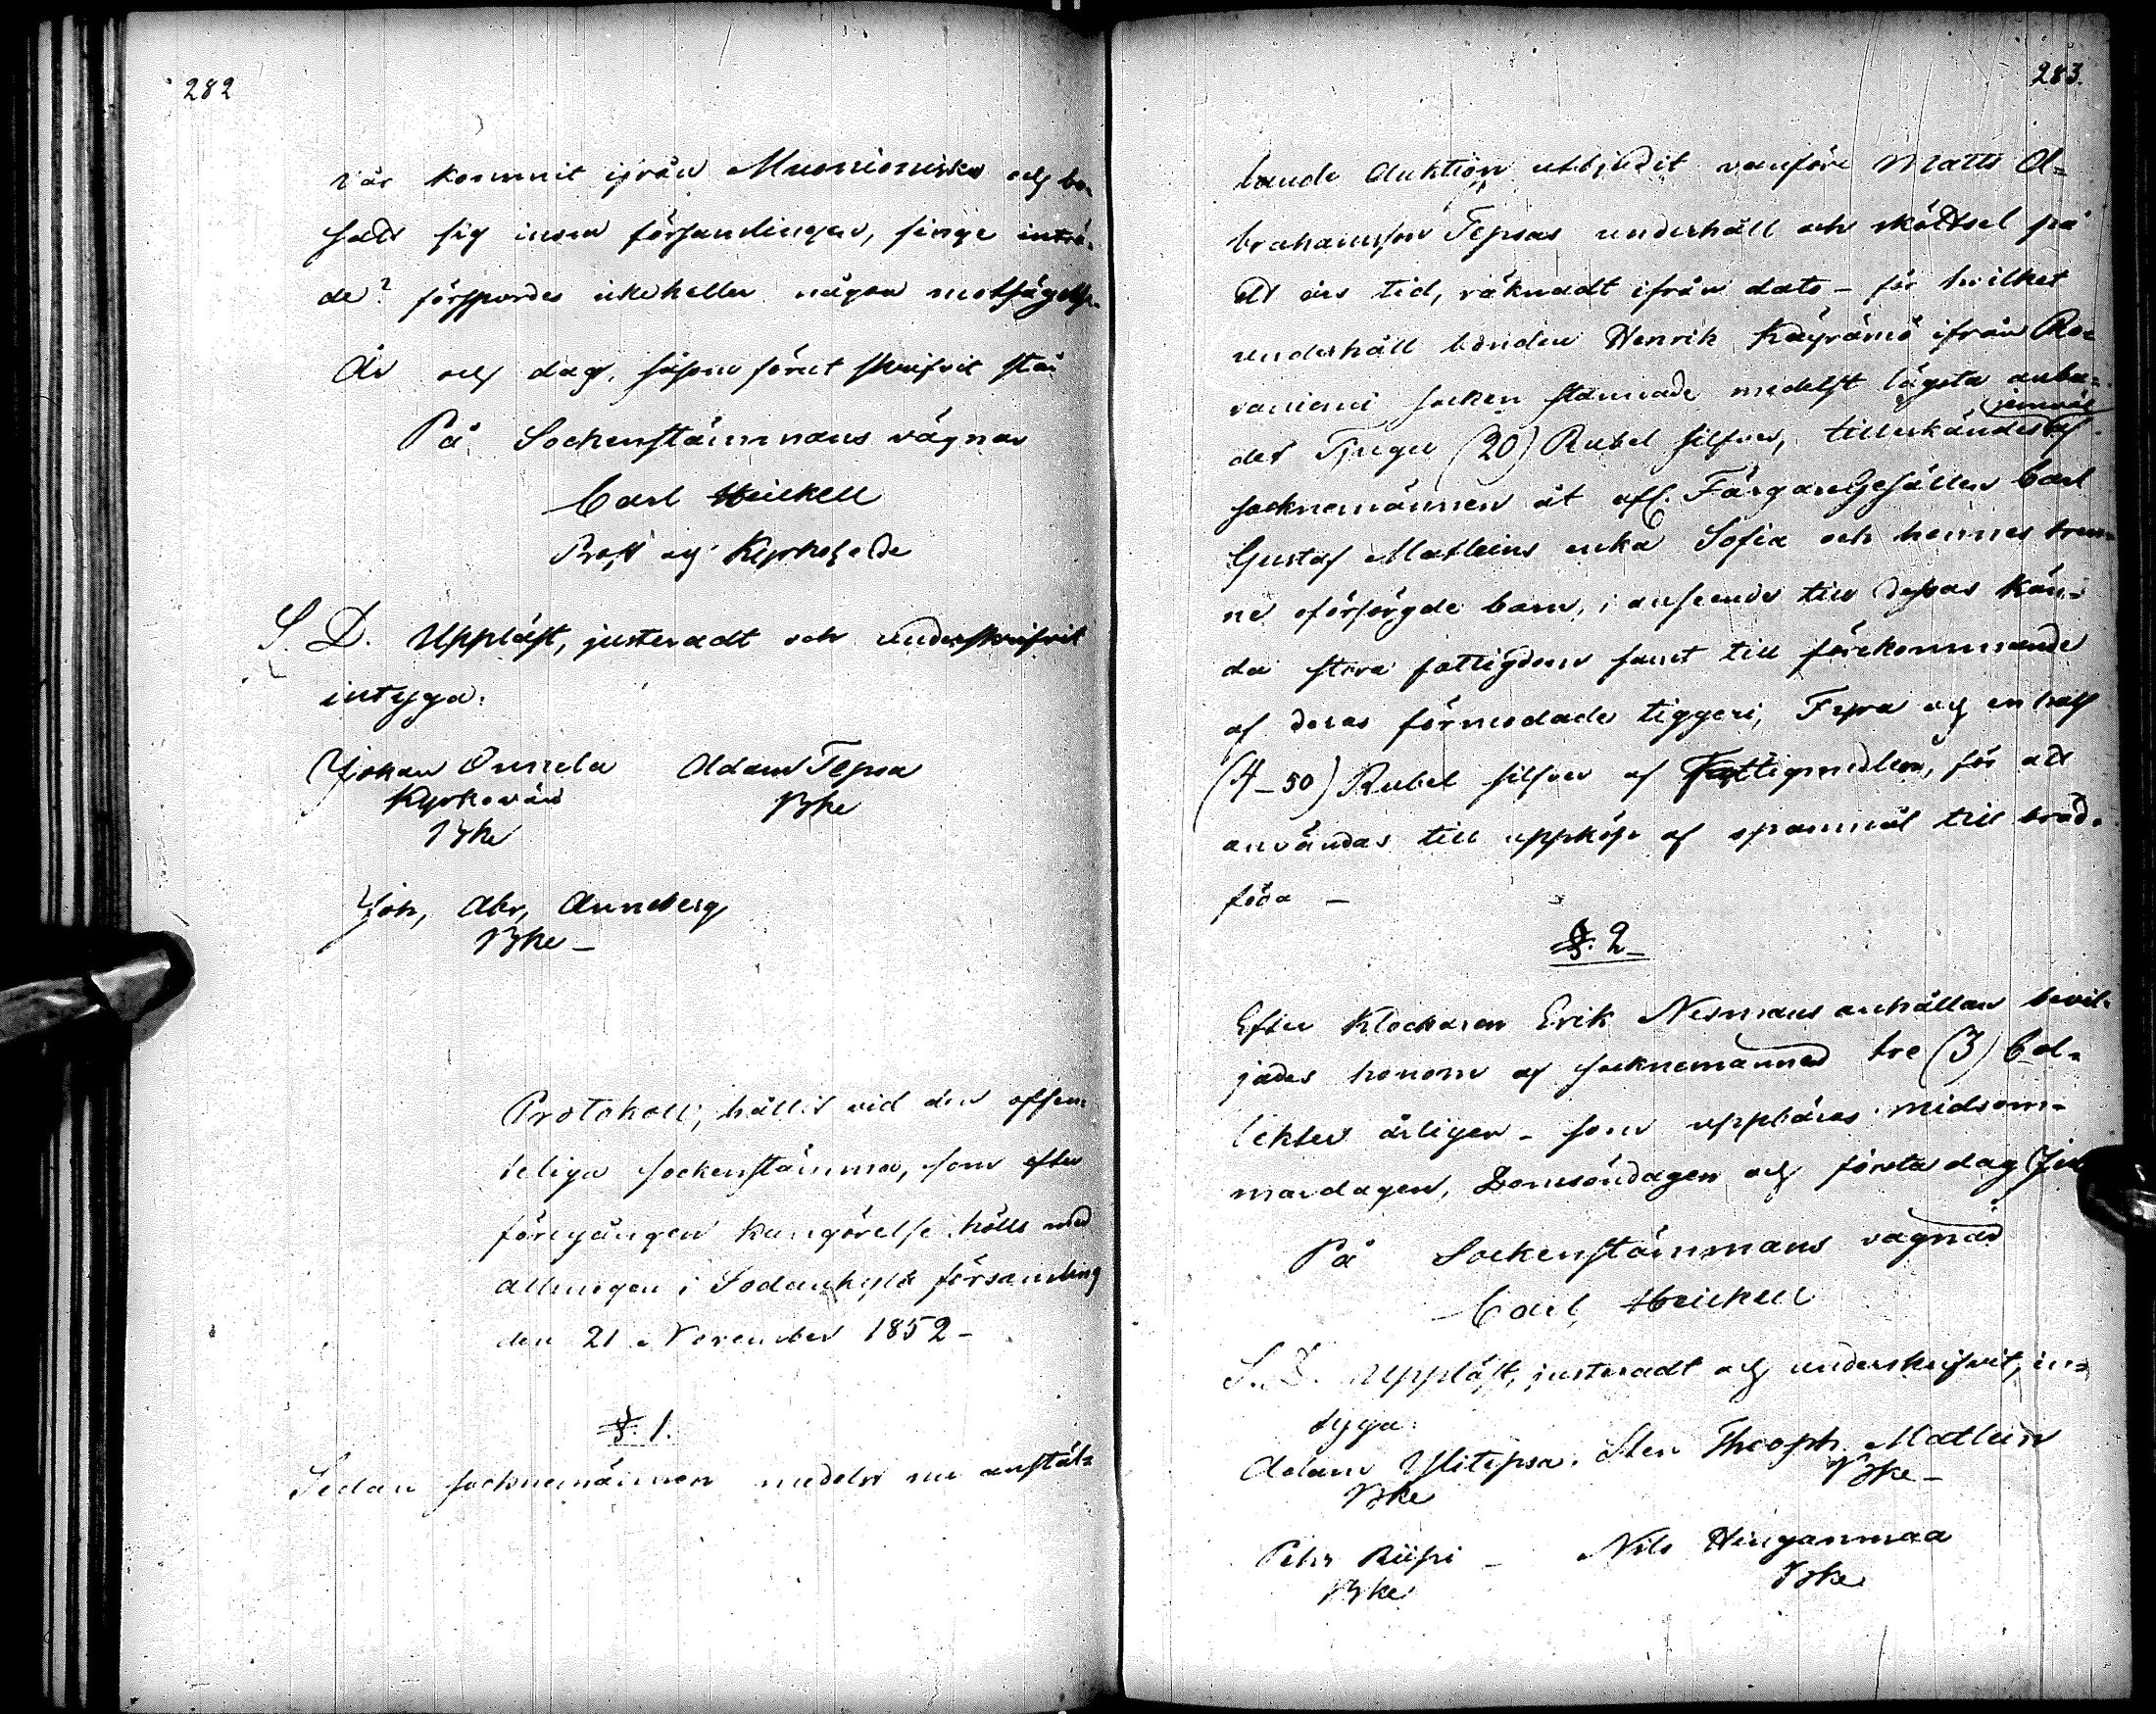 282
i år kommit ifrån Muonionisko och bo-
satt sig inom församlingen, finge inträ-
de? försporдes icke heller någon motsägelse.
År och dag, såsom förut skrifvit står
På Sockenstämmans vägnar
Carl Heickell
Prost och Kyrkoherde
S. D. Uppläst, justeradt och underskrifvit
intyga:
Johan Onnela Adam Tepsa
Kyrkovärd Bke
Bke
Joh, Abr, Anneberg
Bke –
Protokoll, hållit vid den offen-
teliga sockenstämma, som efter
föregången kungörelse hölls med
allmogen i Sodankylä församling
den 21 November 1852 –
§. 1.
Sedan socknemännen medelst nu anstäl-
283.
lande Auktion utbjudit vanföre Matts A-
brahamsson Tepsas underhåll och skötsel på
ett års tid, räknadt ifrån dato – för hvilket
underhåll bonden Henrik Käyrämö ifrån Ro-
vaniemi socken stannade medelst lägsta anbu-
det Tjugu (20) Rubel silfver, tillerkändes af
jemväl
socknemännen åt afl. Färgare Gesällen Carl
Gustaf Matleins enka Sofia och hennes tren-
ne oförsörgde barn, i anseende till dessas kän-
da stora fattigdom samt till förekommande
af deras förmodade tiggeri, Fyra och en half
(4–50) Rubel silfver af Fattigmedlen, för att
användas till uppköp af spannmål till bröd-
föda –
§. 2 –
Efter Klockaren Erik Nesmans anhållan bevil-
jades honom af socknemännen tre (3) Col-
lekter årligen – som uppbäras midsom-
mardagen, Domsöndagen och första dag Jul
På Sockenstämmans vägnar
Carl Heickell
S. D. Uppläst, justeradt och underskrifvit, in-
tyga:
Adam Ylitepsa. Sten Theoph. Matlein
Bke Bke –
Pehr Riipi – Nils Hinganmaa
Bke Bke